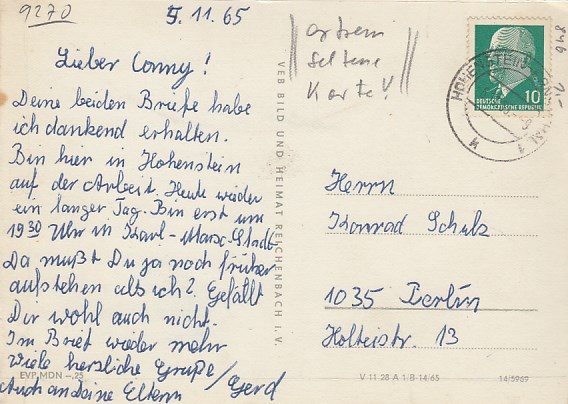 9270
5.11.65
Lieber Conny!
Deine beiden Briefe habe
ich dankend erhalten.
Bin hier in Hohenstein
auf der Arbeit. Heute wieder
ein langer Tag. Bin erst um
19 30 Uhr in Karl-Marx-Stadt.
Da mußt Du ja noch früher
aufstehen als ich? Gefällt
Dir wohl auch nicht.
Im Brief wieder mehr
Viele herzliche Grüße / Gerd
Auch an Deine Eltern
EVP MDN -.25
VEB BILD UND HEIMAT REICHENBACH I. V.
extrem
seltene
Karte!
846
DEUTSCHE
DEMOKRATISCHE REPUBLIK
10
Herrn
Konrad Schulz
1035 Berlin
Holteistr. 13
V 11 28 A 1 B 14/65
14/5969